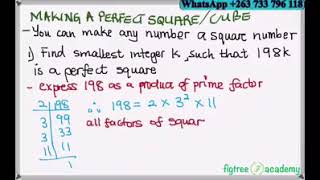 WhatsApp +263 733 796 118
MAKING A PERFECT SQUARE/CUBE
- You can make any number a square number
i) Find smallest integer k, such that 198k
is a perfect square
- express 198 as a product of prime factor
2 | 198 ∴ 198 = 2 × 3² × 11
3 | 99
3 | 33 all factors of squar
11 | 11
1
figtree academy